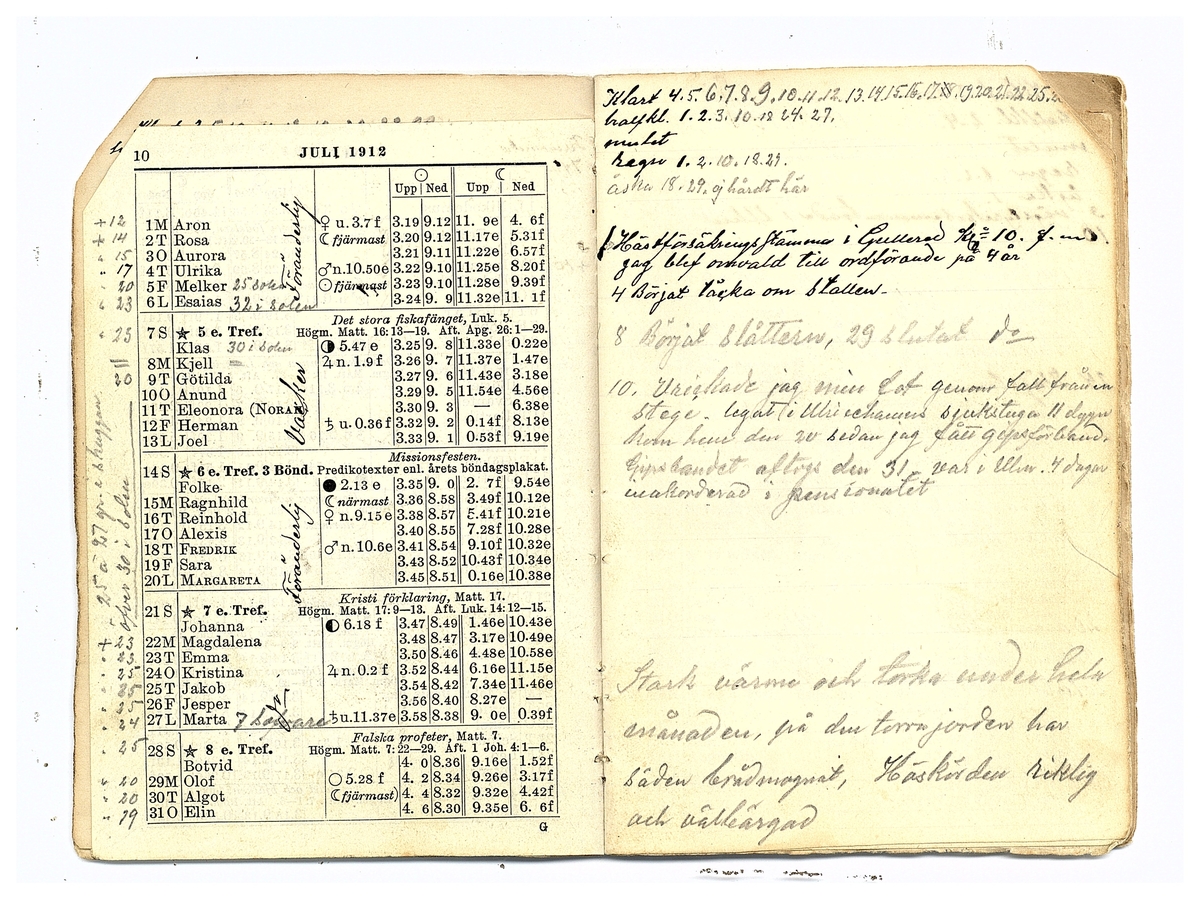 10 JULI 1912
☉ ☾
Upp Ned Upp Ned
+12 1 M Aron ♀ u. 3.7 f 3.19 9.12 11. 9e 4. 6f
+14 2 T Rosa ☾ fjärmast 3.20 9.12 11.17e 5.31f
" 15 3 O Aurora 3.21 9.11 11.22e 6.57f
" 17 4 T Ulrika ♂ n. 10.50e 3.22 9.10 11.25e 8.20f
" 20 5 F Melker 25 i solen ☉ fjärmast 3.23 9.10 11.28e 9.39f
" 23 6 L Esaias 32 i solen 3.24 9. 9 11.32e 11. 1f
Föränderlig
Det stora fiskafänget, Luk. 5.
" 25 7 S ★ 5 e. Tref. Högm. Matt. 16: 13—19. Aft. Apg. 26: 1—29.
Klas 30 i solen ◑ 5.47 e 3.25 9. 8 11.33e 0.22e
8 M Kjell ♃ n. 1.9 f 3.26 9. 7 11.37e 1.47e
20 9 T Götilda 3.27 9. 6 11.43e 3.18e
10 O Anund 3.29 9. 5 11.54e 4.56e
11 T Eleonora (NORA) 3.30 9. 3 — 6.38e
12 F Herman ♄ u. 0.36 f 3.32 9. 2 0.14f 8.13e
13 L Joel 3.33 9. 1 0.53f 9.19e
Vacker
25 à 27 gr. i skuggan
öfver 30 i solen
Missionsfesten.
14 S ★ 6 e. Tref. 3 Bönd. Predikotexter enl. årets böndagsplakat.
Folke ● 2.13 e 3.35 9. 0 2. 7f 9.54e
15 M Ragnhild ☾ närmast 3.36 8.58 3.49f 10.12e
16 T Reinhold ♀ n. 9.15 e 3.38 8.57 5.41f 10.21e
17 O Alexis 3.40 8.55 7.28f 10.28e
18 T FREDRIK ♂ n. 10.6e 3.41 8.54 9.10f 10.32e
19 F Sara 3.43 8.52 10.43f 10.34e
20 L MARGARETA 3.45 8.51 0.16e 10.38e
Föränderlig
Kristi förklaring, Matt. 17.
21 S ★ 7 e. Tref. Högm. Matt. 17: 9—13. Aft. Luk. 14: 12—15.
Johanna ◐ 6.18 f 3.47 8.49 1.46e 10.43e
+23 22 M Magdalena 3.48 8.47 3.17e 10.49e
" 23 23 T Emma 3.50 8.46 4.48e 10.58e
" 25 24 O Kristina ♃ n. 0.2 f 3.52 8.44 6.16e 11.15e
" 25 25 T Jakob 3.54 8.42 7.34e 11.46e
" 25 26 F Jesper 3.56 8.40 8.27e —
" 24 27 L Marta 7 sofvare ♄ u. 11.37e 3.58 8.38 9. 0e 0.39f
Falska profeter, Matt. 7.
" 25 28 S ★ 8 e. Tref. Högm. Matt. 7: 22—29. Aft. 1 Joh. 4: 1—6.
Botvid 4. 0 8.36 9.16e 1.52f
" 20 29 M Olof ○ 5.28 f 4. 2 8.34 9.26e 3.17f
" 20 30 T Algot (☾ fjärmast) 4. 4 8.32 9.32e 4.42f
" 19 31 O Elin 4. 6 8.30 9.35e 6. 6f
G
Klart 4. 5. 6. 7. 8. 9. 10. 11. 12. 13. 14. 15. 16. 17. 18. 19. 20. 21. 22. 25.
halfkl. 1. 2. 3. 10. 18 24. 27.
mulet
regn 1. 2. 10. 18. 29.
åska 18. 29. ej hårdt här
1 Hästförsäkringsstämma i Gullered Kl. 10. f. m.
jag blef omvald till ordförande på 4 år
4 Börjat täcka om Stallen.
8 Börjat slåttern, 29 slutat do
10. Vrickade jag min fot genom fall från en
stege. legat i Ulricehamns sjukstuga 11 dygn
kom hem den 20 sedan jag fått gipsförband.
Gipsbandet aftogs den 31. var i Ulm. 4 dagar
inakorderad i pensionatet
Stark värme och torka under hela
månaden, på den torra jorden har
säden brådmognat, Höskörden riklig
och välbärgad